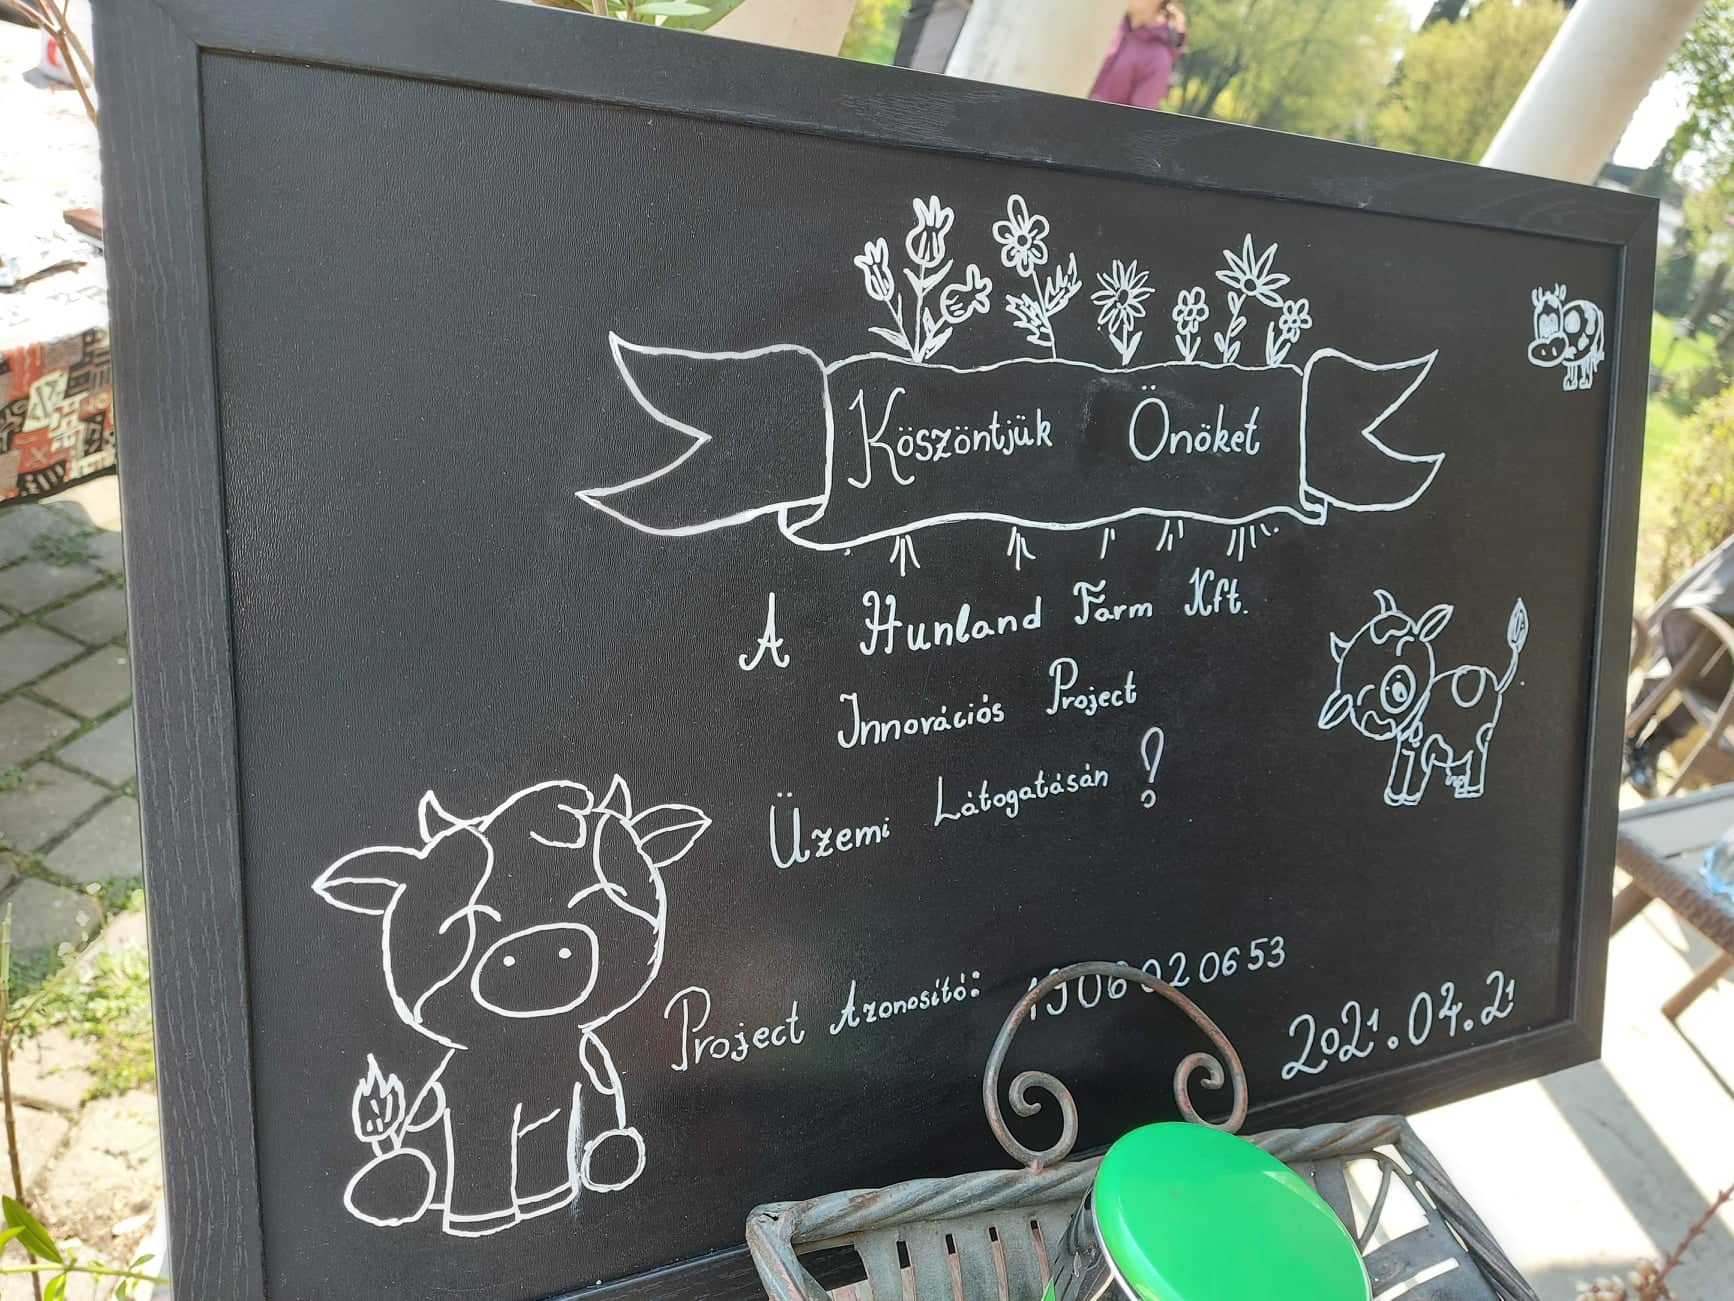 Köszöntjük Önöket
A Hunland Farm Kft.
Innovációs Project
Üzemi Látogatásán !
Project Azonosító: 1906020653
2021.04.21